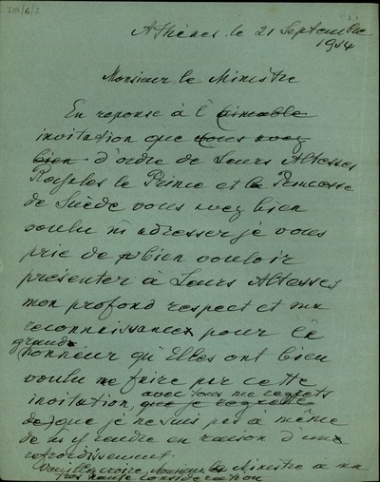 Athènes le 21 Septembre
1934
Monsieur le Ministre
En reponse à l'aimable
invitation que vous avez
bien d'ordre de Leurs Altesses
Royales le Prince et la Princesse
de Suède vous avez bien
voulu m'adresser je vous
prie de bien vouloir
présenter à Leurs Altesses
mon profond respect et ma
reconnaissance pour le
grand
honneur qu'Elles ont bien
voulu me faire par cette
avec tous mes regrets
invitation, que je regrette
de que je ne suis pas à même
de m'y rendre en raison d'un
refroidissement.
Veuillez croire, Monsieur le Ministre à ma
très haute considération